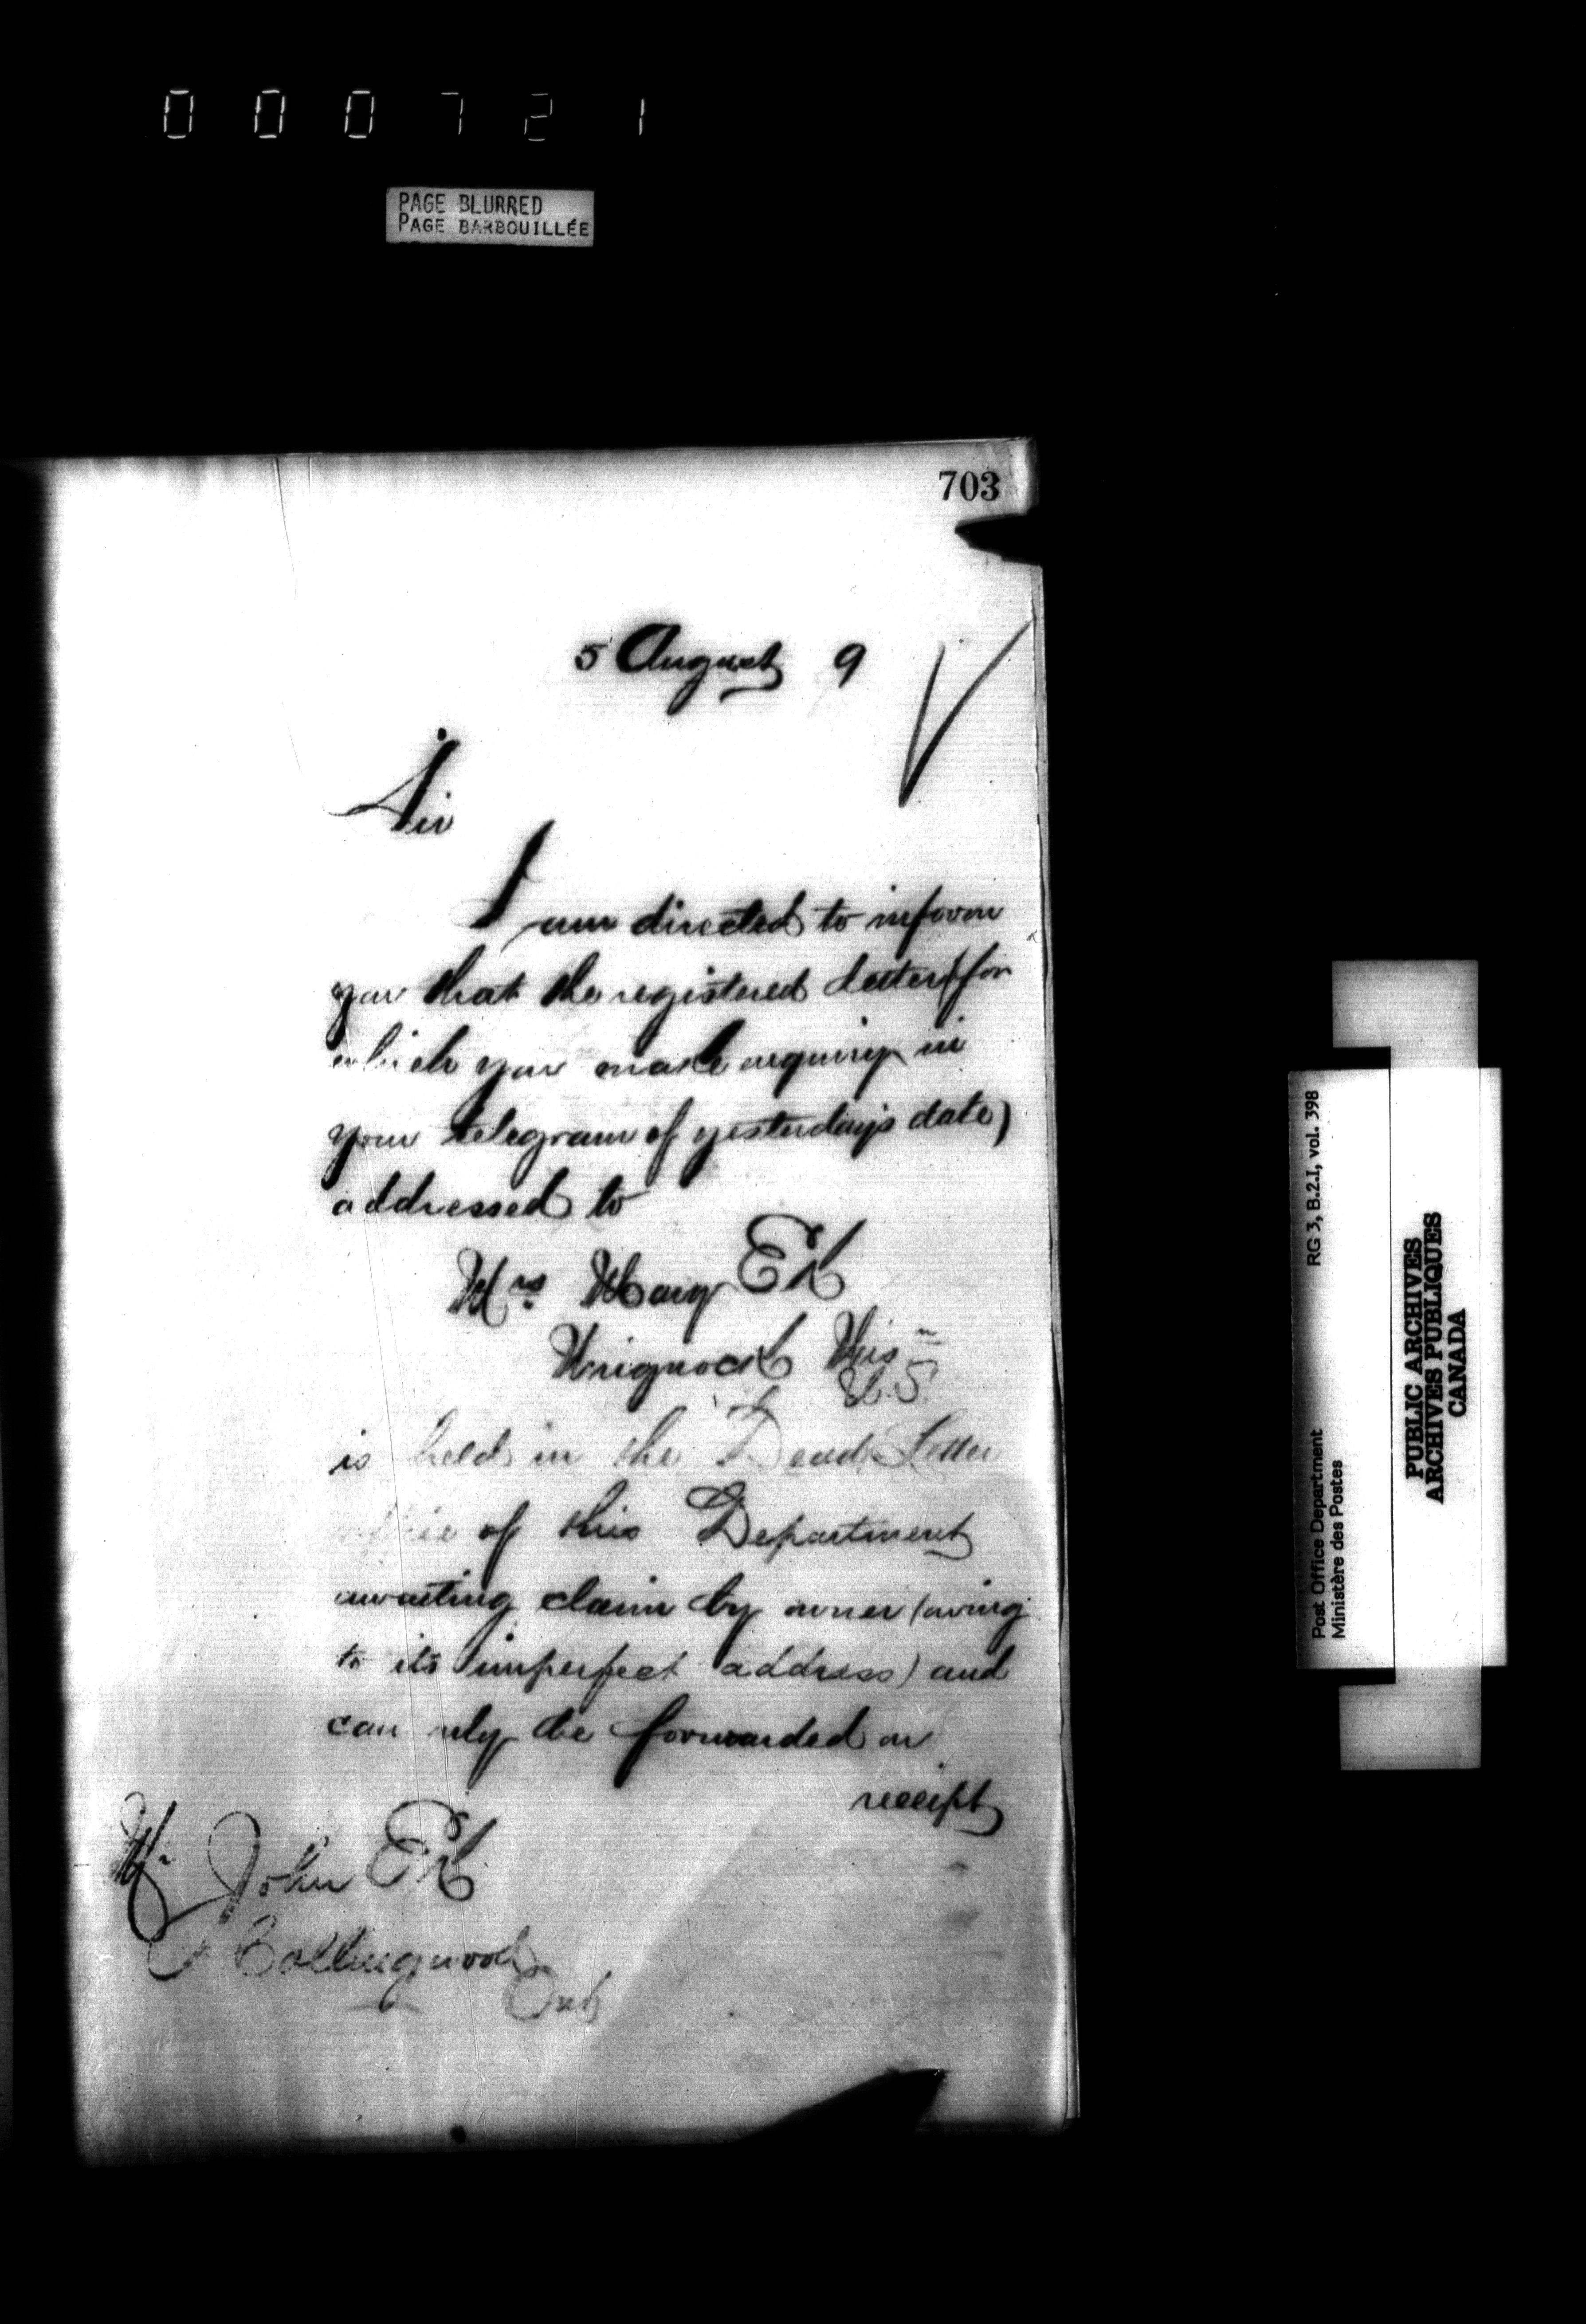 000721
PAGE BLURRED
PAGE BARBOUILLÉE
703
5 August 9
Sir
I am directed to inform
you that the registered letter (for
which you make enquiry in
your telegram of yesterday's date)
addressed to
Mrs Mary Ek
Wis
U.S.
is held in the Dead Letter
office of this Department
awaiting claim by owner (owing
to its imperfect address) and
can only be forwarded on
receipt
Mr John Ek
Collingwood
Ont
Post Office Department
Ministère des Postes
RG 3, B.2.1, vol. 398
PUBLIC ARCHIVES
ARCHIVES PUBLIQUES
CANADA